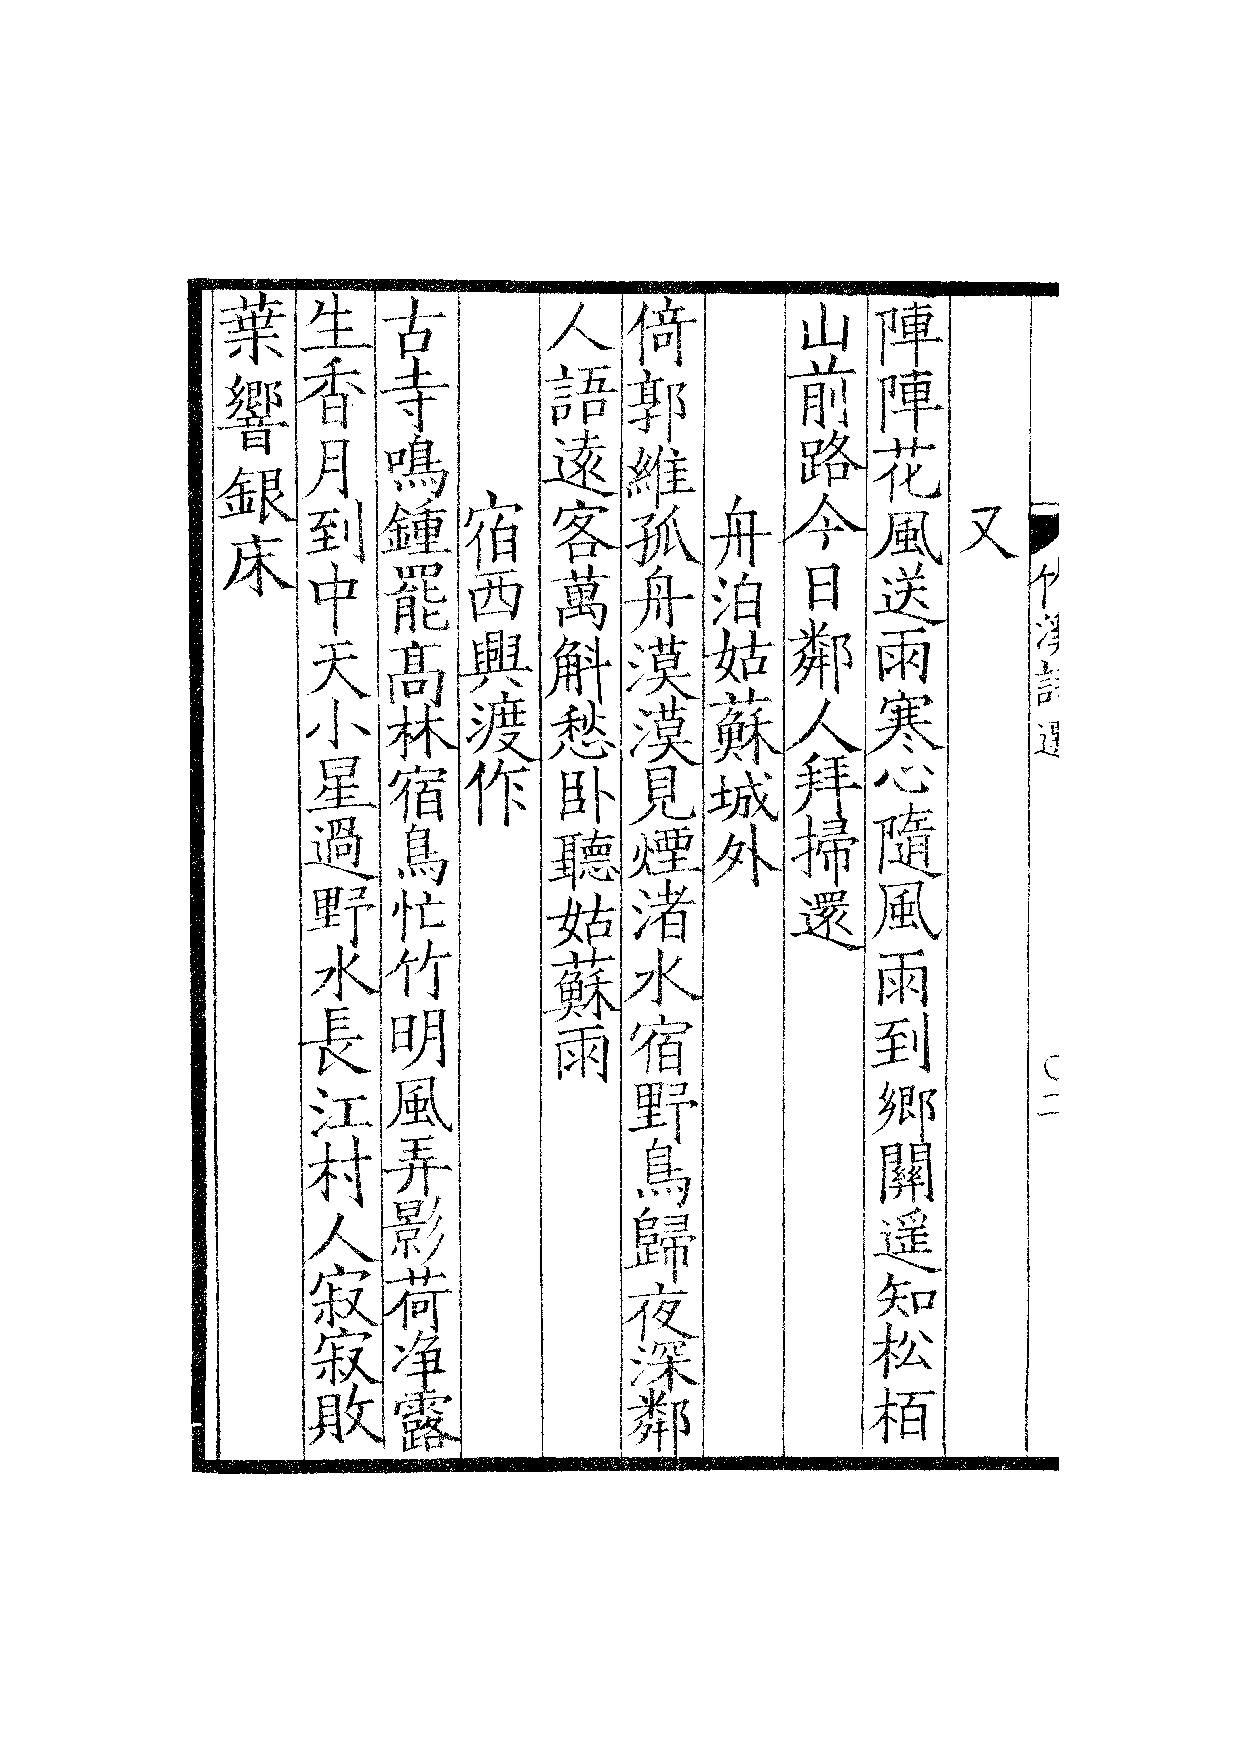 竹溪詩選
〇二
又
陣陣花風送雨寒心隨風雨到鄉關遥知松栢
山前路今日鄰人拜掃還
舟泊姑蘇城外
倚郭維孤舟漠漠見煙渚水宿野鳥歸夜深鄰
人語遠客萬斛愁卧聽姑蘇雨
宿西興渡作
古寺鳴鍾罷髙林宿鳥忙竹明風弄影荷净露
生香月到中天小星過野水長江村人寂寂敗
葉響銀床